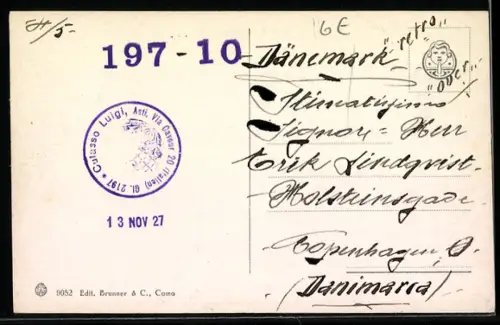 H/5-
6E
197-10
Dänemark
"retro"
"over"
Stimatissimo
Signor = Herr
Erik Lindqvist-
Holsteinsgade-
Copenhagen Ø.
(Danimarca)
Colasso Luigi, Asti, Via Cavour 20 (Italien) Gl. 2197 *
13 NOV 27
9052 Edit. Brunner & C., Como